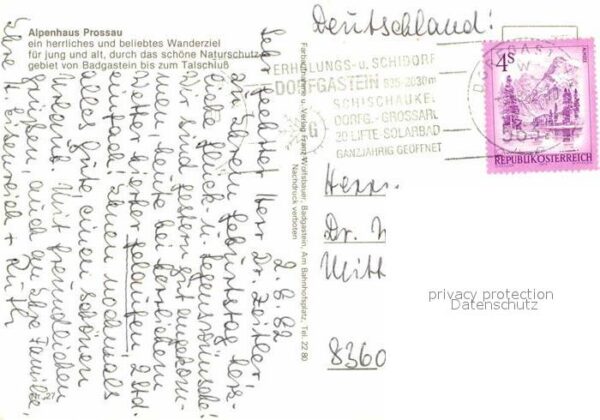 Alpenhaus Prossau
ein herrliches und beliebtes Wanderziel
für jung und alt, durch das schöne Naturschutz-
gebiet von Badgastein bis zum Talschluß
Deutschland!
ERHOLUNGS- u. SCHIDORF
DORFGASTEIN 835-2030m
SCHISCHAUKEL
DORFG.-GROSSARL
20 LIFTE-SOLARBAD
GANZJÄHRIG GEÖFFNET
G
4S
REPUBLIK ÖSTERREICH
Farbaufnahme u. Verlag Franz Wolfsbauer, Badgastein, Am Bahnhofsplatz, Tel. 22 80
Nachdruck verboten
2.6.82
Sehr geehrter Herr Dr. Zeitler,
zu Ihrem Geburtstag herz-
liche Glück- u. Segenswünsche!
Wir sind gestern gut angekom-
men, heute bei herrlichem
Wetter hierher gelaufen, 2 Std.
einfach. Ihnen nochmals
alles gute, einen schönen
Urlaub. Mit freundlichen
Grüßen, auch an Ihre Familie
Ihre + Ruth
Herrn
Dr.
Mitt
8360
27
privacy protection
Datenschutz